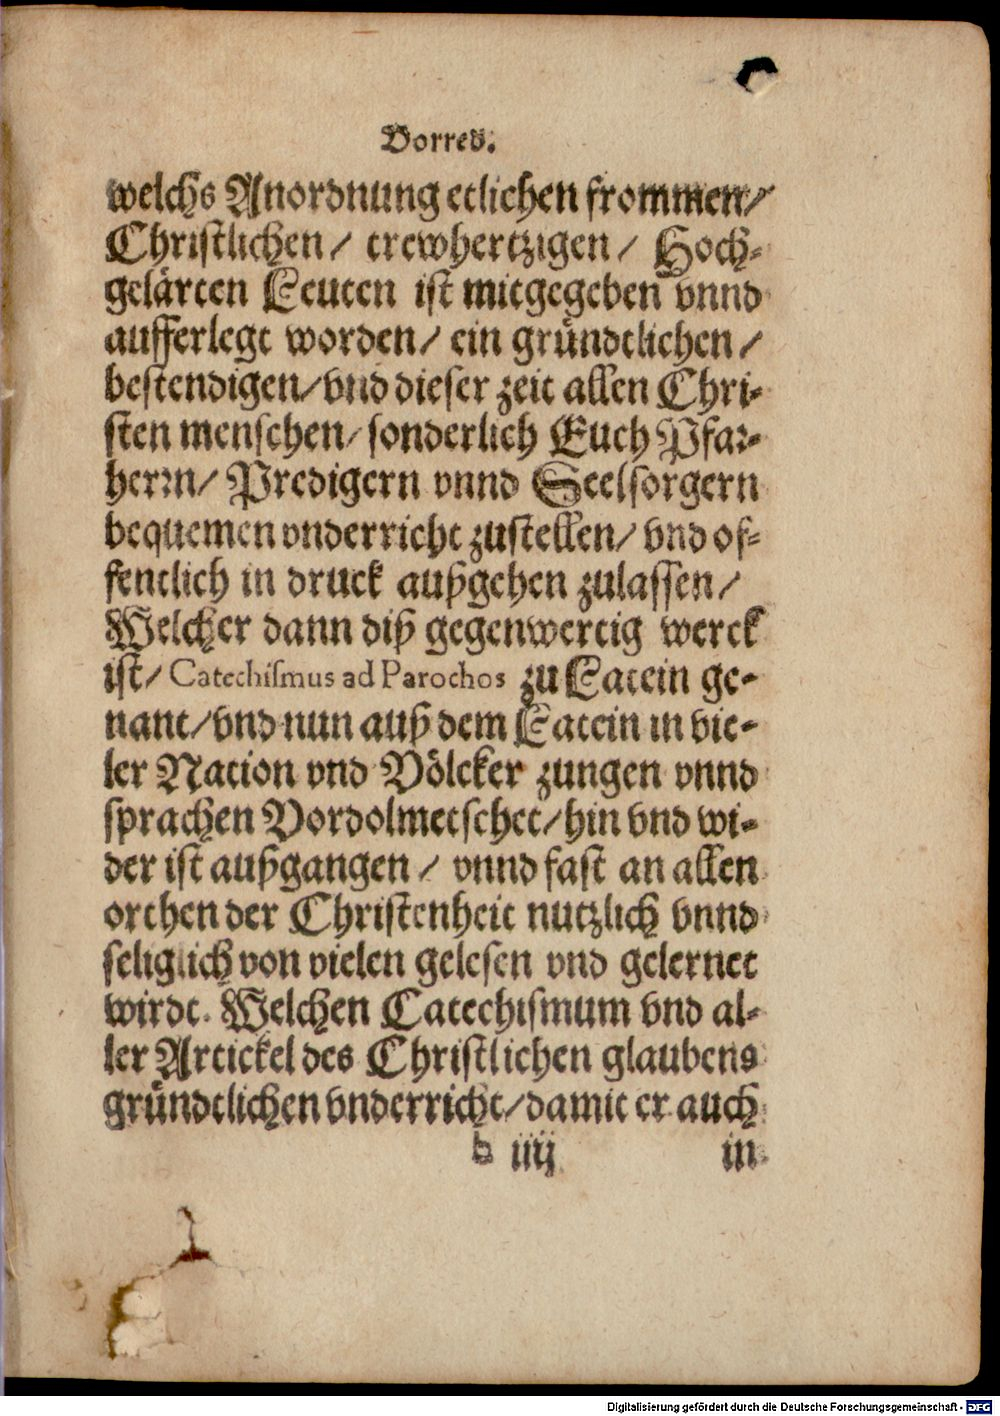 Vorred.
welchs Anordnung etlichen frommen/
Christlichen/ trewhertzigen/ Hoch-
gelärten Leuten ist mitgegeben vnnd
aufferlegt worden/ ein gründtlichen/
bestendigen/ vnd dieser zeit allen Chri-
sten menschen/ sonderlich Euch Pfar-
herrn/ Predigern vnnd Seelsorgern
bequemen vnderricht zustellen/ vnd of-
fentlich in druck außgehen zulassen/
Welcher dann diß gegenwertig werck
ist/ Catechismus ad Parochos zu Latein ge-
nant/ vnd nun auß dem Latein in vie-
ler Nation vnd Völcker zungen vnnd
sprachen Vordolmetschet/ hin vnd wi-
der ist außgangen/ vnnd fast an allen
orthen der Christenheit nutzlich vnnd
seliglich von vielen gelesen vnd gelernet
wirdt. Welchen Catechismum vnd al-
ler Artickel des Christlichen glaubens
gründtlichen vnderricht/ damit er auch
b iiij in
Digitalisierung gefördert durch die Deutsche Forschungsgemeinschaft - DFG